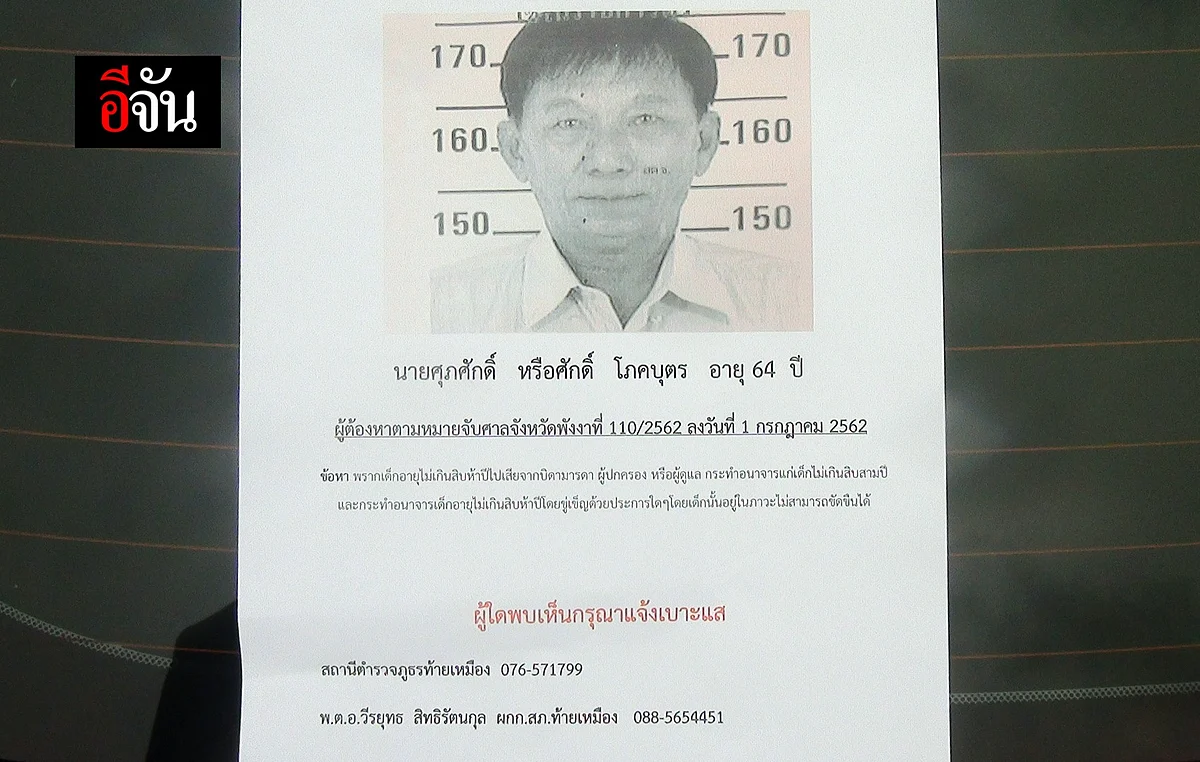 อีจัน
170 170
160 160
150 150
นายศุภศักดิ์ หรือศักดิ์ โภคบุตร อายุ 64 ปี
ผู้ต้องหาตามหมายจับศาลจังหวัดพังงาที่ 110/2562 ลงวันที่ 1 กรกฎาคม 2562
ข้อหา พรากเด็กอายุไม่เกินสิบห้าปีไปเสียจากบิดามารดา ผู้ปกครอง หรือผู้ดูแล กระทำอนาจารแก่เด็กไม่เกินสิบสามปี
และกระทำอนาจารเด็กอายุไม่เกินสิบห้าปีโดยขู่เข็ญด้วยประการใดๆโดยเด็กนั้นอยู่ในภาวะไม่สามารถขัดขืนได้
ผู้ใดพบเห็นกรุณาแจ้งเบาะแส
สถานีตำรวจภูธรท้ายเหมือง 076-571799
พ.ต.อ.วีรยุทธ สิทธิรัตนกุล ผกก.สภ.ท้ายเหมือง 088-5654451